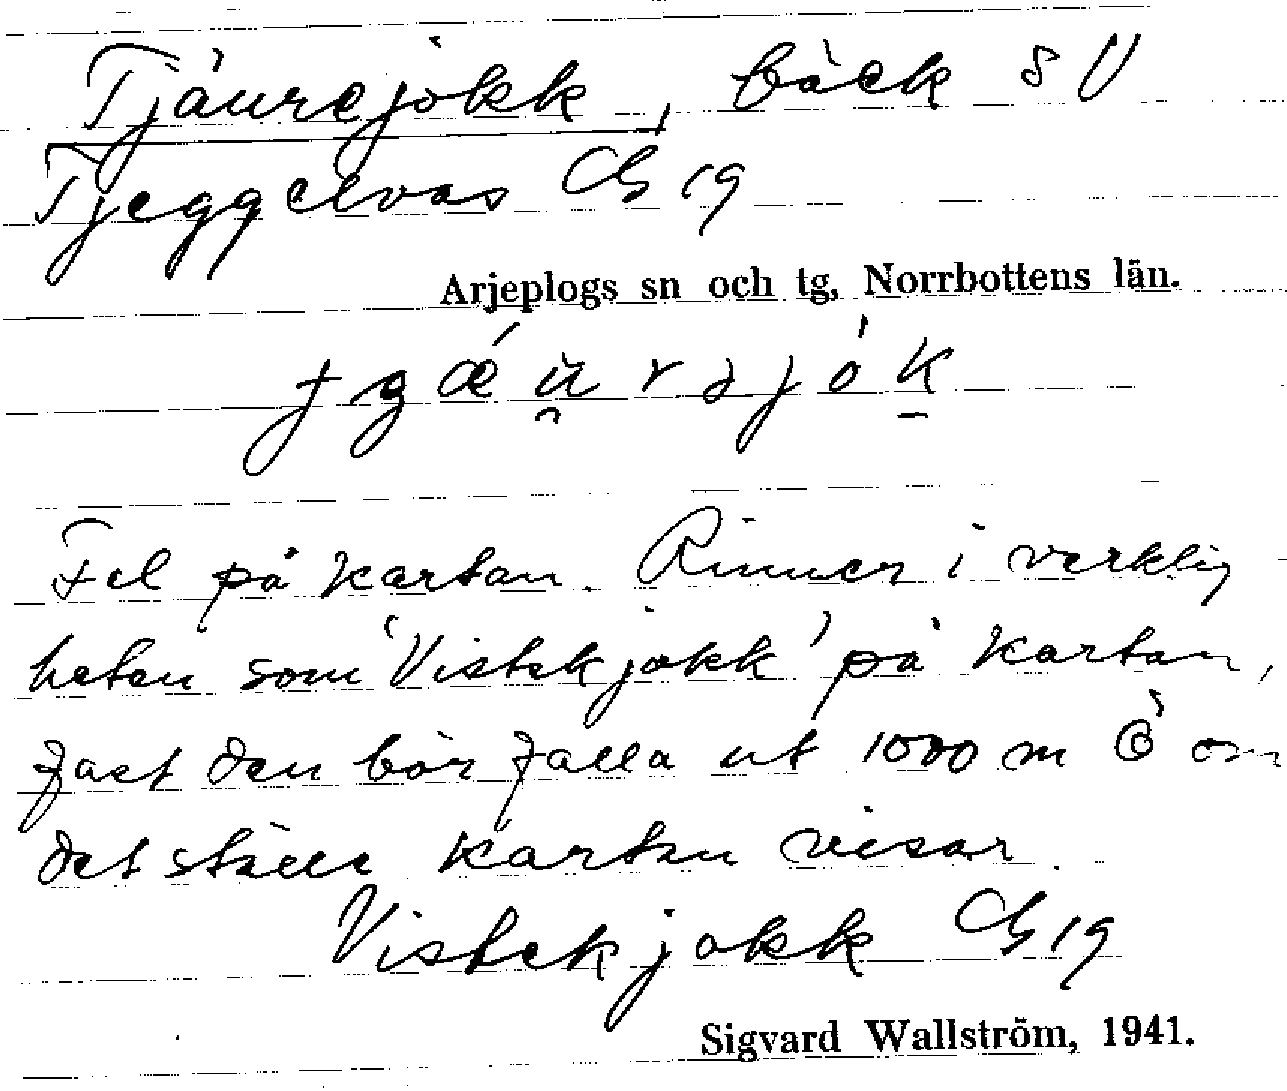 Tjäurejokk, bäck s V
Tjeggelvas Gb 19
Arjeplogs sn och tg, Norrbottens län.
Fel på kartan. Rinner i verklig
heten som 'Vistekjokk' på kartan,
fast den bör falla ut 1000 m Ö om
det ställe kartan visar.
Vistekjokk Gb 19
Sigvard Wallström, 1941.